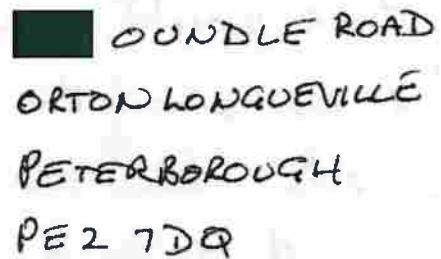 OUNDLE ROAD
ORTON LONGUEVILLE
PETERBOROUGH
PE2 7DQ